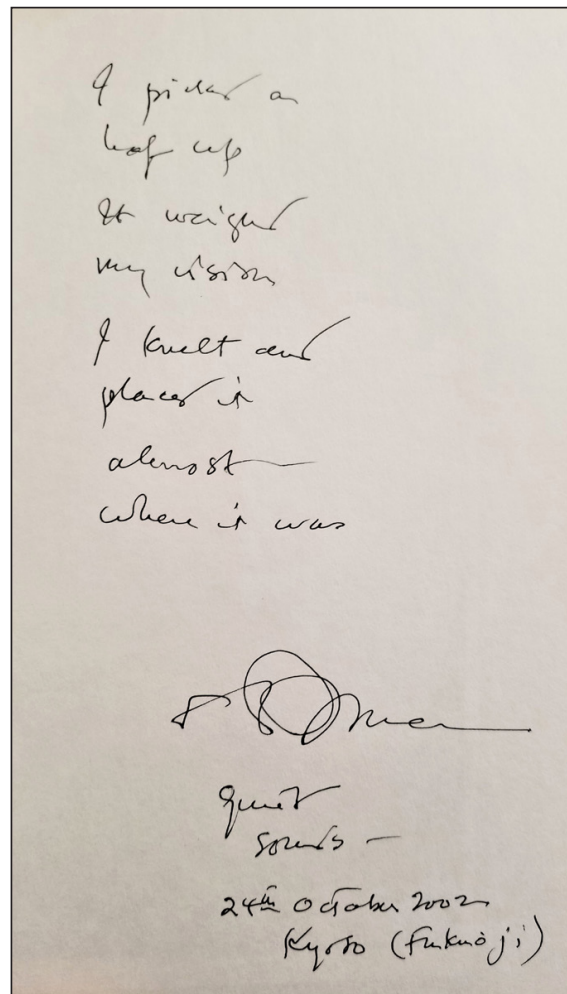 I picked a
leaf up
It weighed
my vision
I knelt and
placed it
almost
where it was
quiet
sounds –
24th October 2002
Kyoto (Funkuōji)